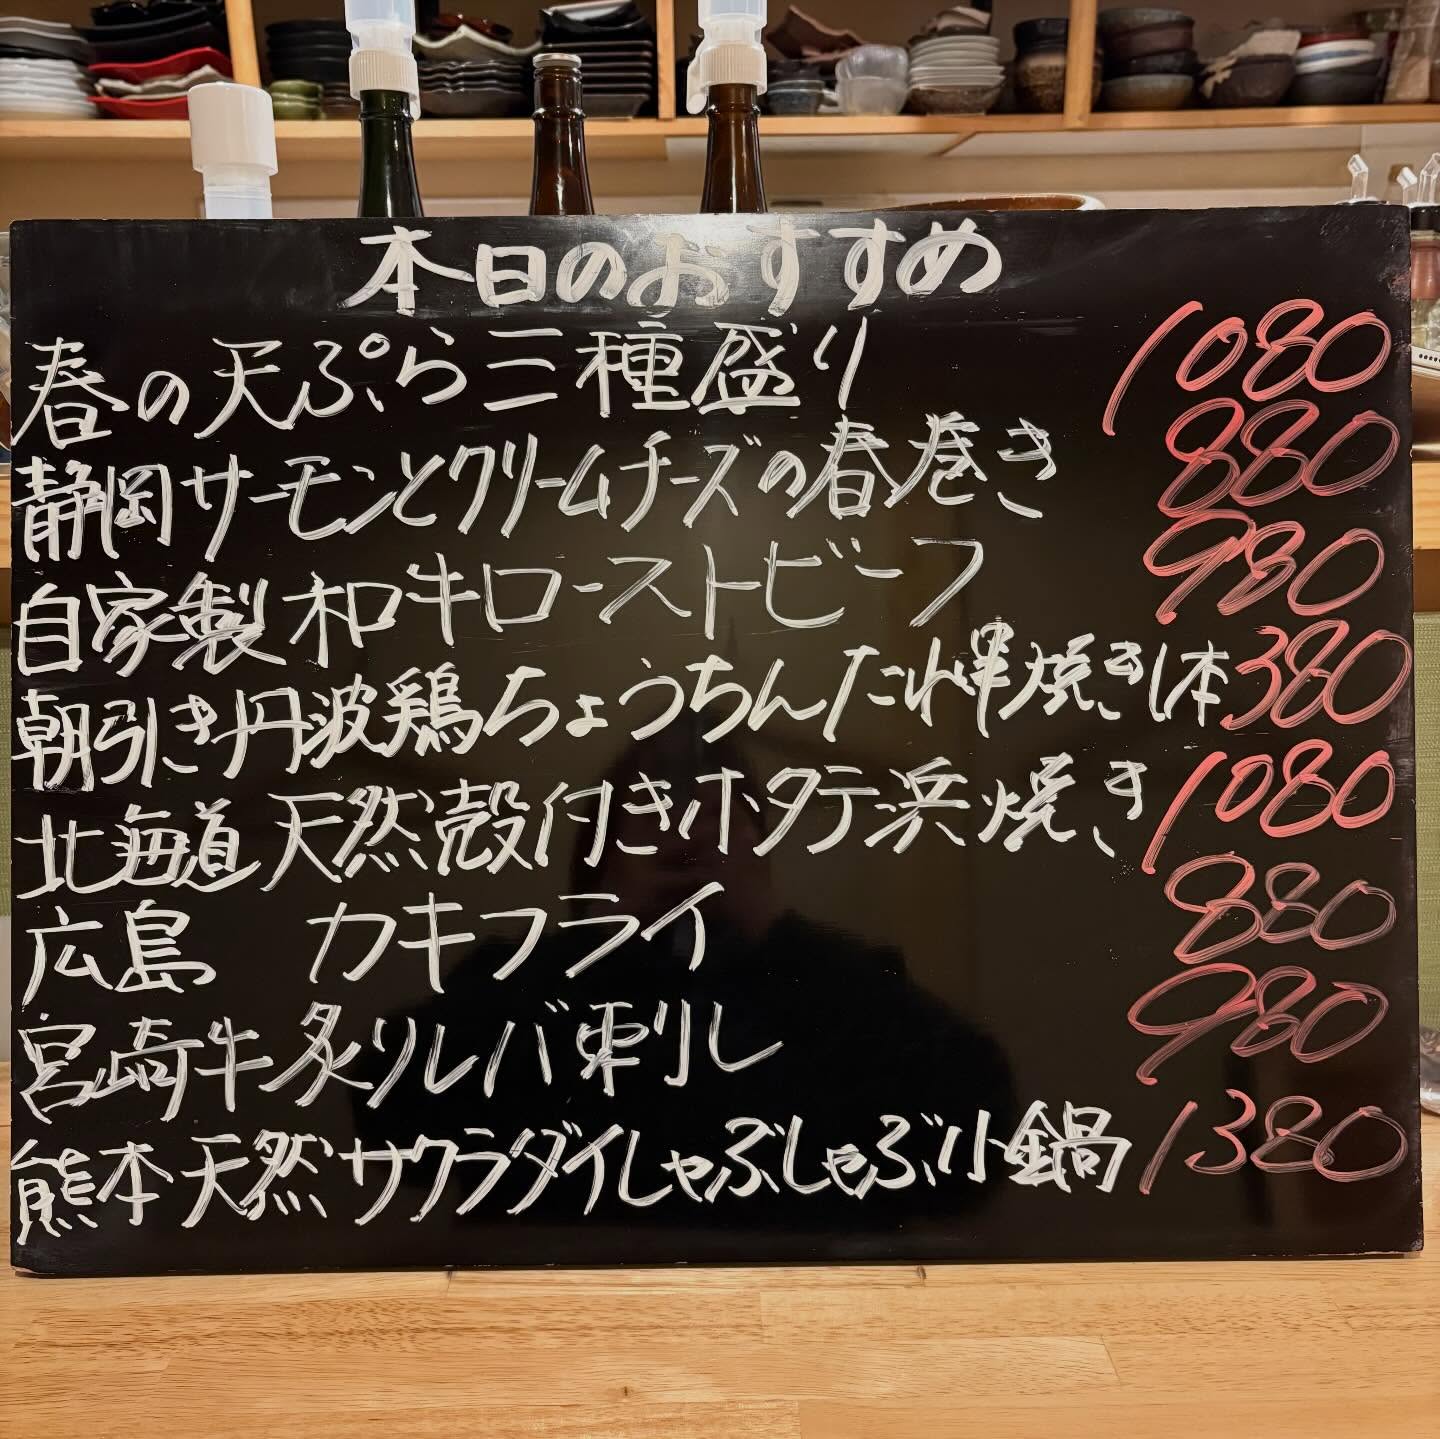 本日のおすすめ
春の天ぷら三種盛り 1080
静岡サーモンとクリームチーズの春巻き 880
自家製 和牛ローストビーフ 980
朝引き丹波鶏ちょうちんたれ串焼き1本 380
北海道 天然殻付きホタテ浜焼き 1080
広島 カキフライ 880
宮崎牛炙りレバ刺し 980
熊本 天然サクラダイしゃぶしゃぶ小鍋 1380